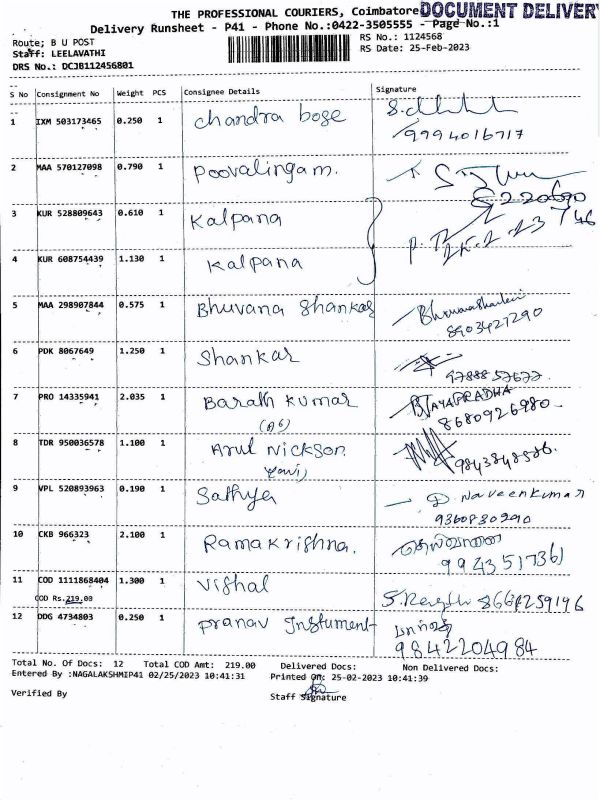 THE PROFESSIONAL COURIERS, Coimbatore DOCUMENT DELIVERY
Delivery Runsheet - P41 - Phone No.:0422-3505555 - Page No.:1
Route; B U POST RS No.: 1124568
Staff: LEELAVATHI RS Date: 25-Feb-2023
DRS No.: DCJB112456801
S No Consignment No Weight PCS Consignee Details Signature
1 IXM 503173465 0.250 1 chandra bose
9994016717
2 MAA 570127098 0.790 1 Poovalingam.
3 KUR 528809643 0.610 1 Kalpana
4 KUR 608754439 1.130 1 Kalpana
5 MAA 298907844 0.575 1 Bhuvana Shankar
8903427290
6 PDK 8067649 1.250 1 Shankar
9788857677
7 PRO 14335941 2.035 1 Barath Kumar JAYAPRADHA
8680926980
8 TDR 950036578 1.100 1 Arul Nickson
9843848586
9 VPL 520893963 0.190 1 Sathya D. Naveenkumar
9360830290
10 CKB 966323 2.100 1 Ramakrishna. தெய்வானை
9943517361
11 COD 1111868404 1.300 1 Vishal
COD Rs.219.00 8664259196
12 DDG 4734803 0.250 1 Pranav Instument
9842204984
Total No. Of Docs: 12 Total COD Amt: 219.00 Delivered Docs: Non Delivered Docs:
Entered By :NAGALAKSHMIP41 02/25/2023 10:41:31 Printed On: 25-02-2023 10:41:39
Verified By Staff Signature